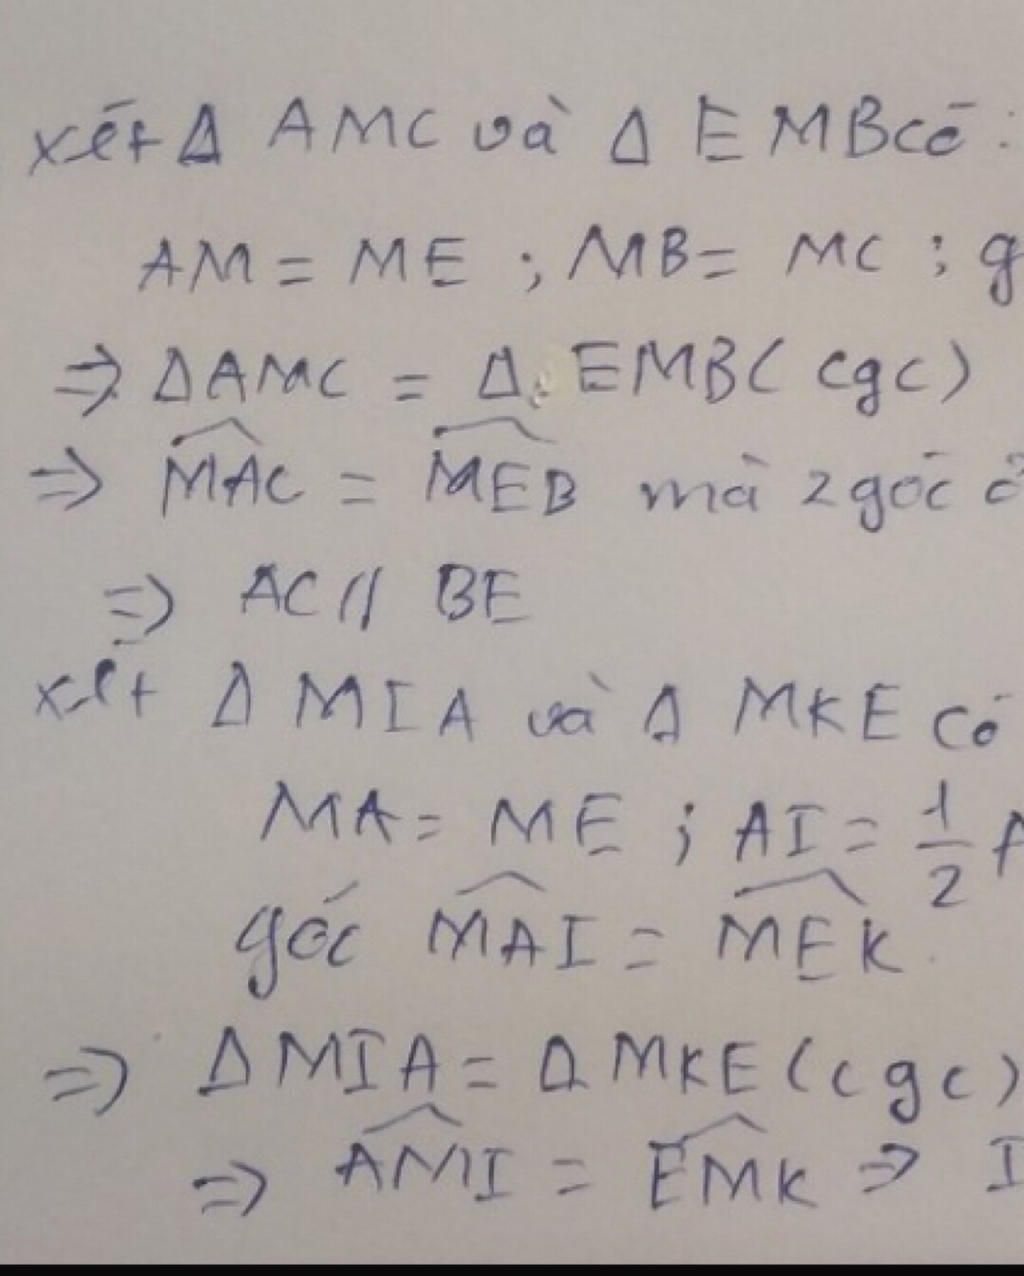 xét Δ AMC và Δ EMB có :
AM = ME ; MB = MC ; g
=> Δ AMC = Δ EMB ( cgc)
=> MAC = MEB mà 2 góc ở
=> AC // BE
xét Δ MIA và Δ MKE có
MA = ME ; AI = 1/2 A
góc MAI = MEK
=> Δ MIA = Δ MKE (cgc)
=> AMI = EMK => I